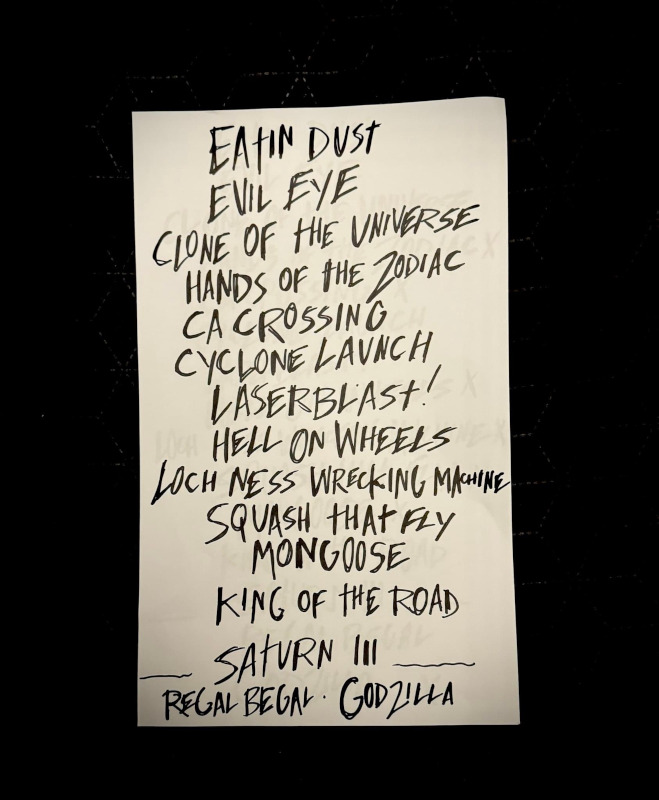 EATIN DUST
EVIL EYE
CLONE OF THE UNIVERSE
HANDS OF THE ZODIAC
CA CROSSING
CYCLONE LAUNCH
LASERBLAST!
HELL ON WHEELS
LOCH NESS WRECKING MACHINE
SQUASH THAT FLY
MONGOOSE
KING OF THE ROAD
SATURN III
REGAL BEGAL · GODZILLA